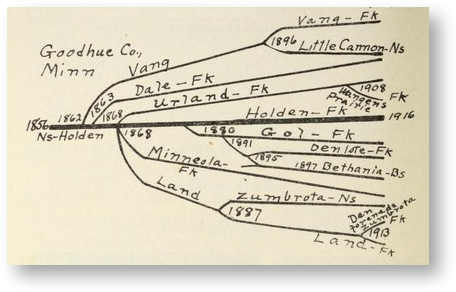 Goodhue Co.,
Minn
Vang
Vang-Fk
1896
Little Cannon-Ns
Dale-Fk
1862
1863
1868
Urland-Fk
Hangens
Prairie
1908
Fk
1856
Ns-Holden
Holden-Fk
1916
1868
1880
Gol-Fk
1891
Denlote-Fk
1895
1897 Bethania-Bs
Minneola-
Fk
Land
Zumbrota-Ns
1887
Den
forenede
Zumbrota
Fk
1913
Land-Fk